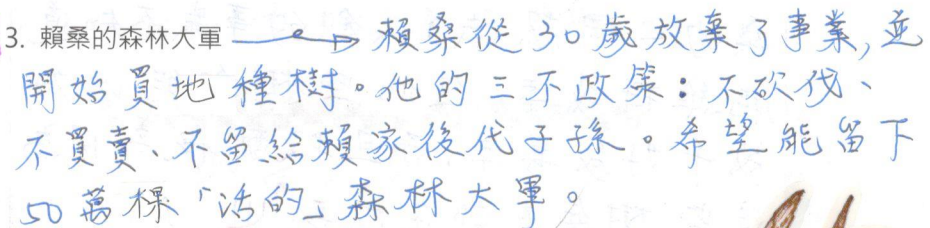 3. 賴桑的森林大軍 → 賴桑從30歲放棄了事業,並
開始買地種樹。他的三不政策:不砍伐、
不買賣、不留給賴家後代子孫。希望能留下
50萬棵「活的」森林大軍。